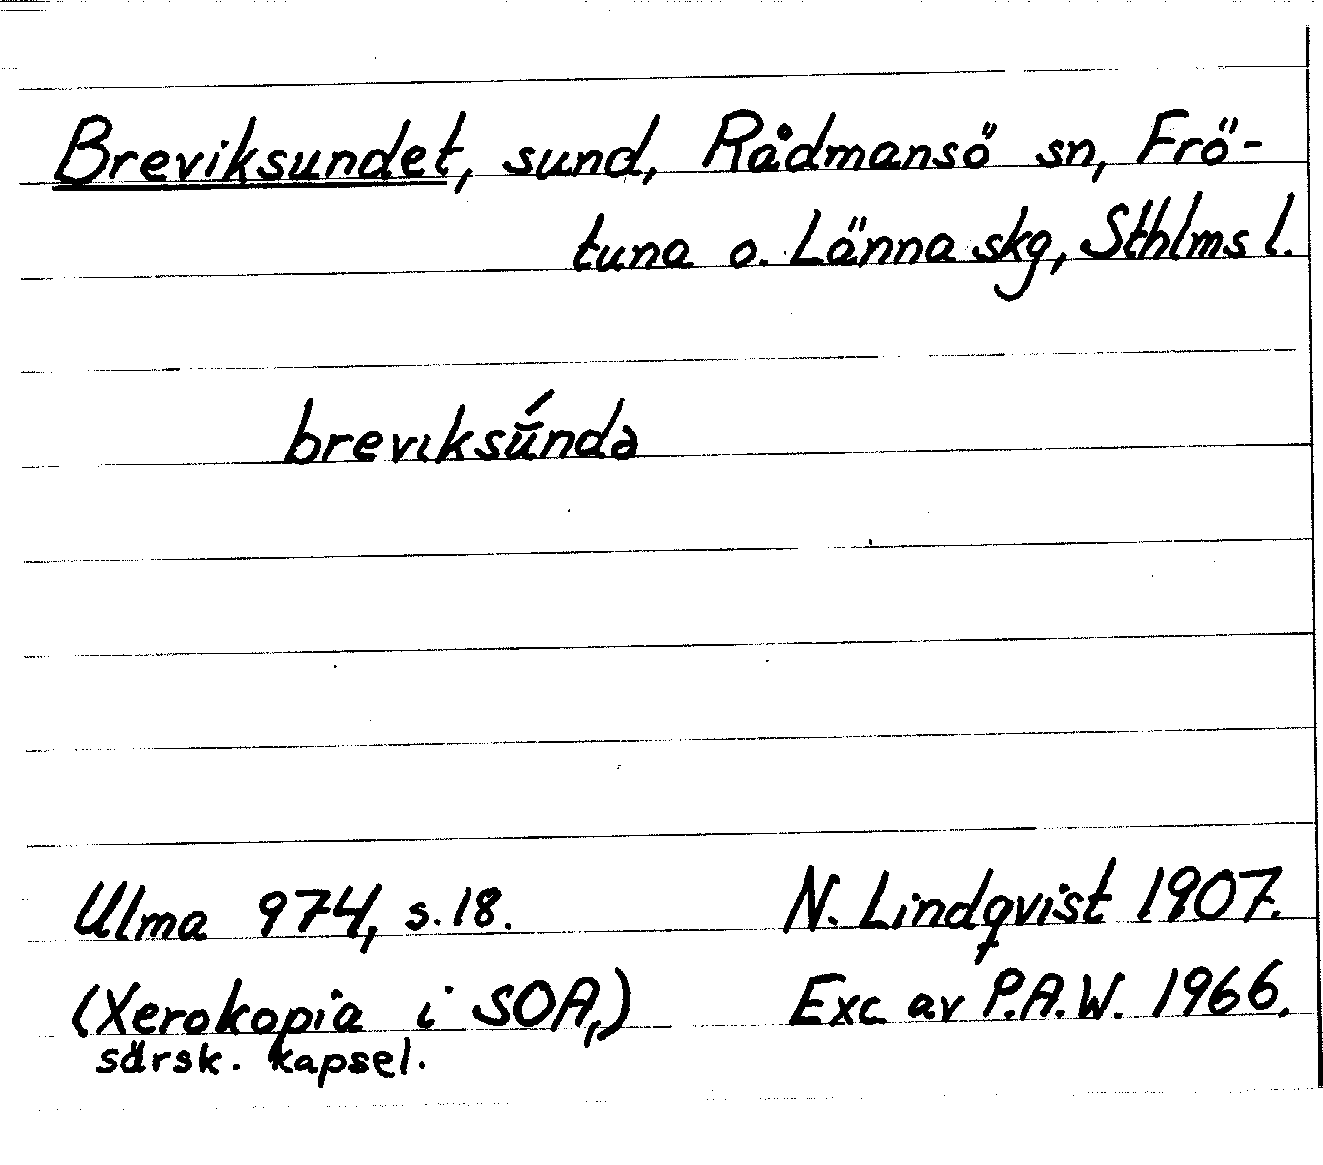 Breviksundet, sund, Rådmansö sn, Frö-
tuna o. Länna skg, Sthlms l.
brevıksū́ndə
Ulma 974, s. 18.
N. Lindqvist 1907.
(Xerokopia i SOA,)
Exc av P.A.W. 1966.
särsk. kapsel.